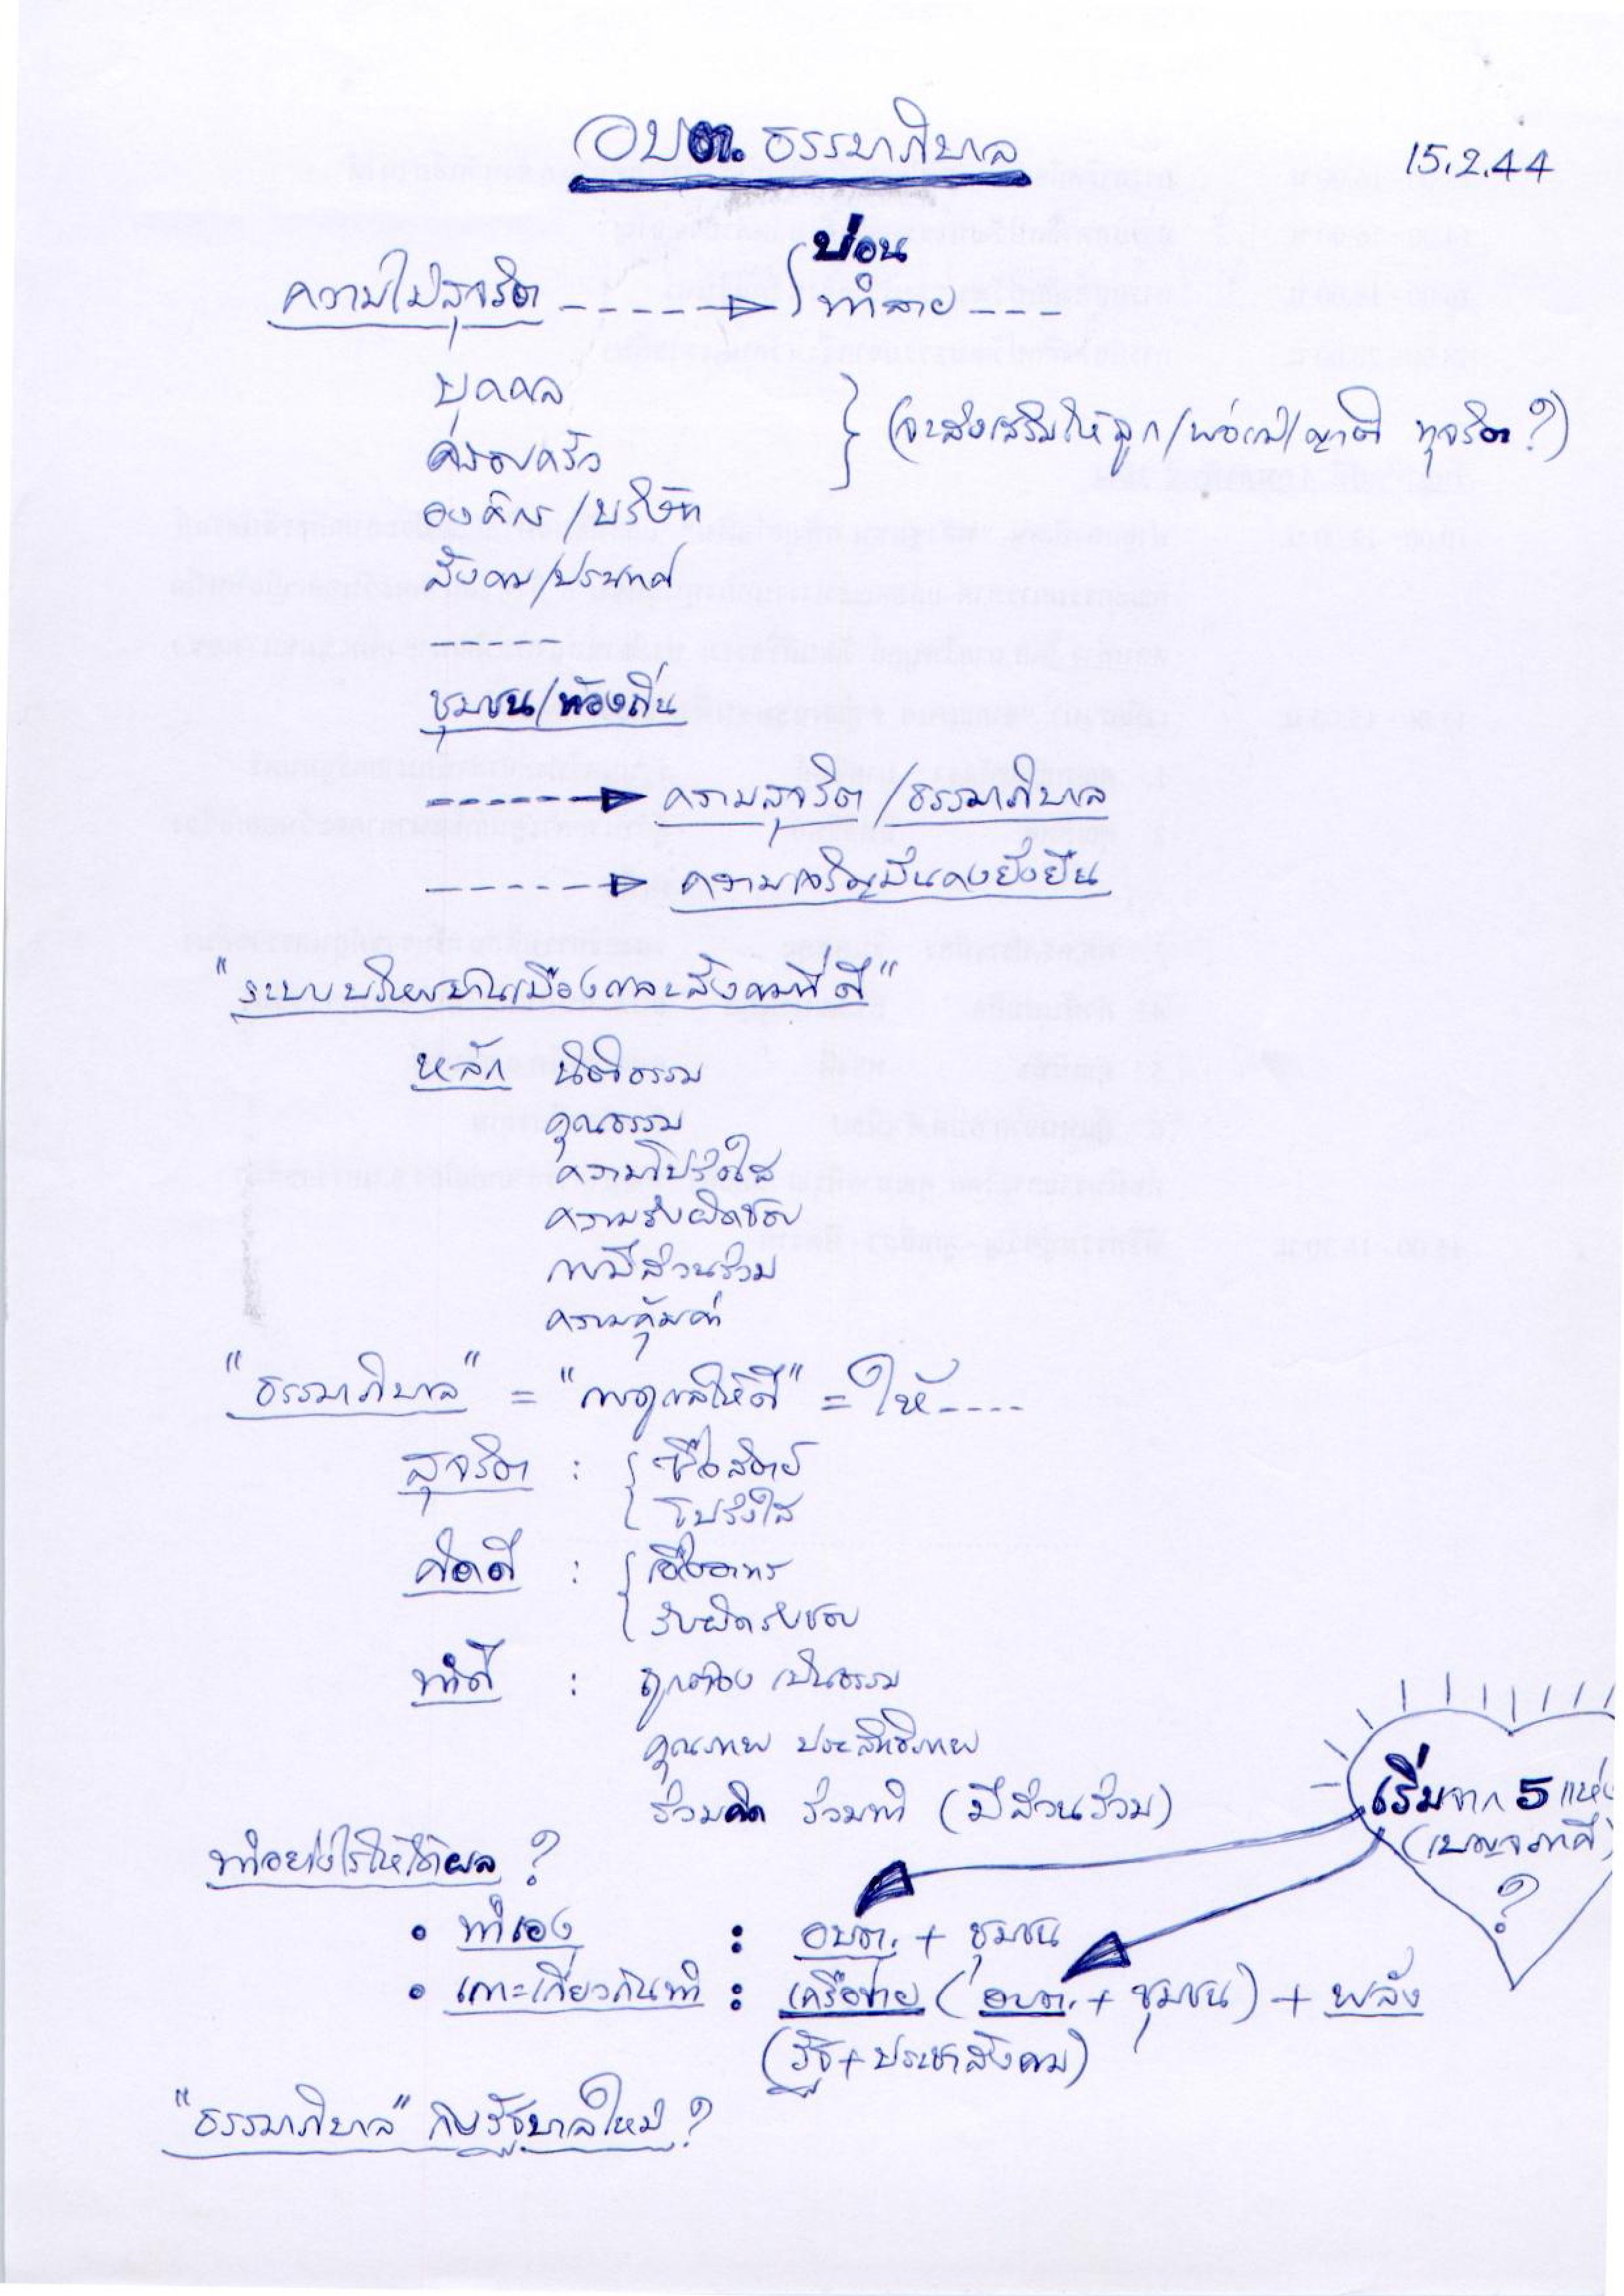 อบต. ธรรมาภิบาล
15.2.44
ความไม่สุจริต -----> { บ่อน
ทำลาย ---
บุคคล
ครอบครัว } (จะส่งเสริมให้ลูก/พ่อแม่/ญาติ ทุจริต?)
องค์กร/บริษัท
สังคม/ประเทศ
-----
ชุมชน/ท้องถิ่น
-----> ความสุจริต/ธรรมาภิบาล
-----> ความเจริญมั่นคงยั่งยืน
"ระบบบริหารบ้านเมืองและสังคมที่ดี"
หลัก นิติธรรม
คุณธรรม
ความโปร่งใส
ความรับผิดชอบ
การมีส่วนร่วม
ความคุ้มค่า
"ธรรมาภิบาล" = "การดูแลให้ดี" = ให้----
สุจริต : { ซื่อสัตย์
โปร่งใส
คิดดี : { เอื้ออาทร
รับผิดรับชอบ
ทำดี : ถูกต้อง เป็นธรรม
คุณภาพ ประสิทธิภาพ
ร่วมคิด ร่วมทำ (มีส่วนร่วม)
เริ่มจาก 5 แห่ง
(เบญจภาคี)
?
ทำอย่างไรให้ได้ผล ?
• ทำเอง : อบต. + ชุมชน
• เกาะเกี่ยวกันทำ : เครือข่าย (อบต. + ชุมชน) + พลัง
(รัฐ + ประชาสังคม)
"ธรรมาภิบาล" กับรัฐบาลใหม่ ?